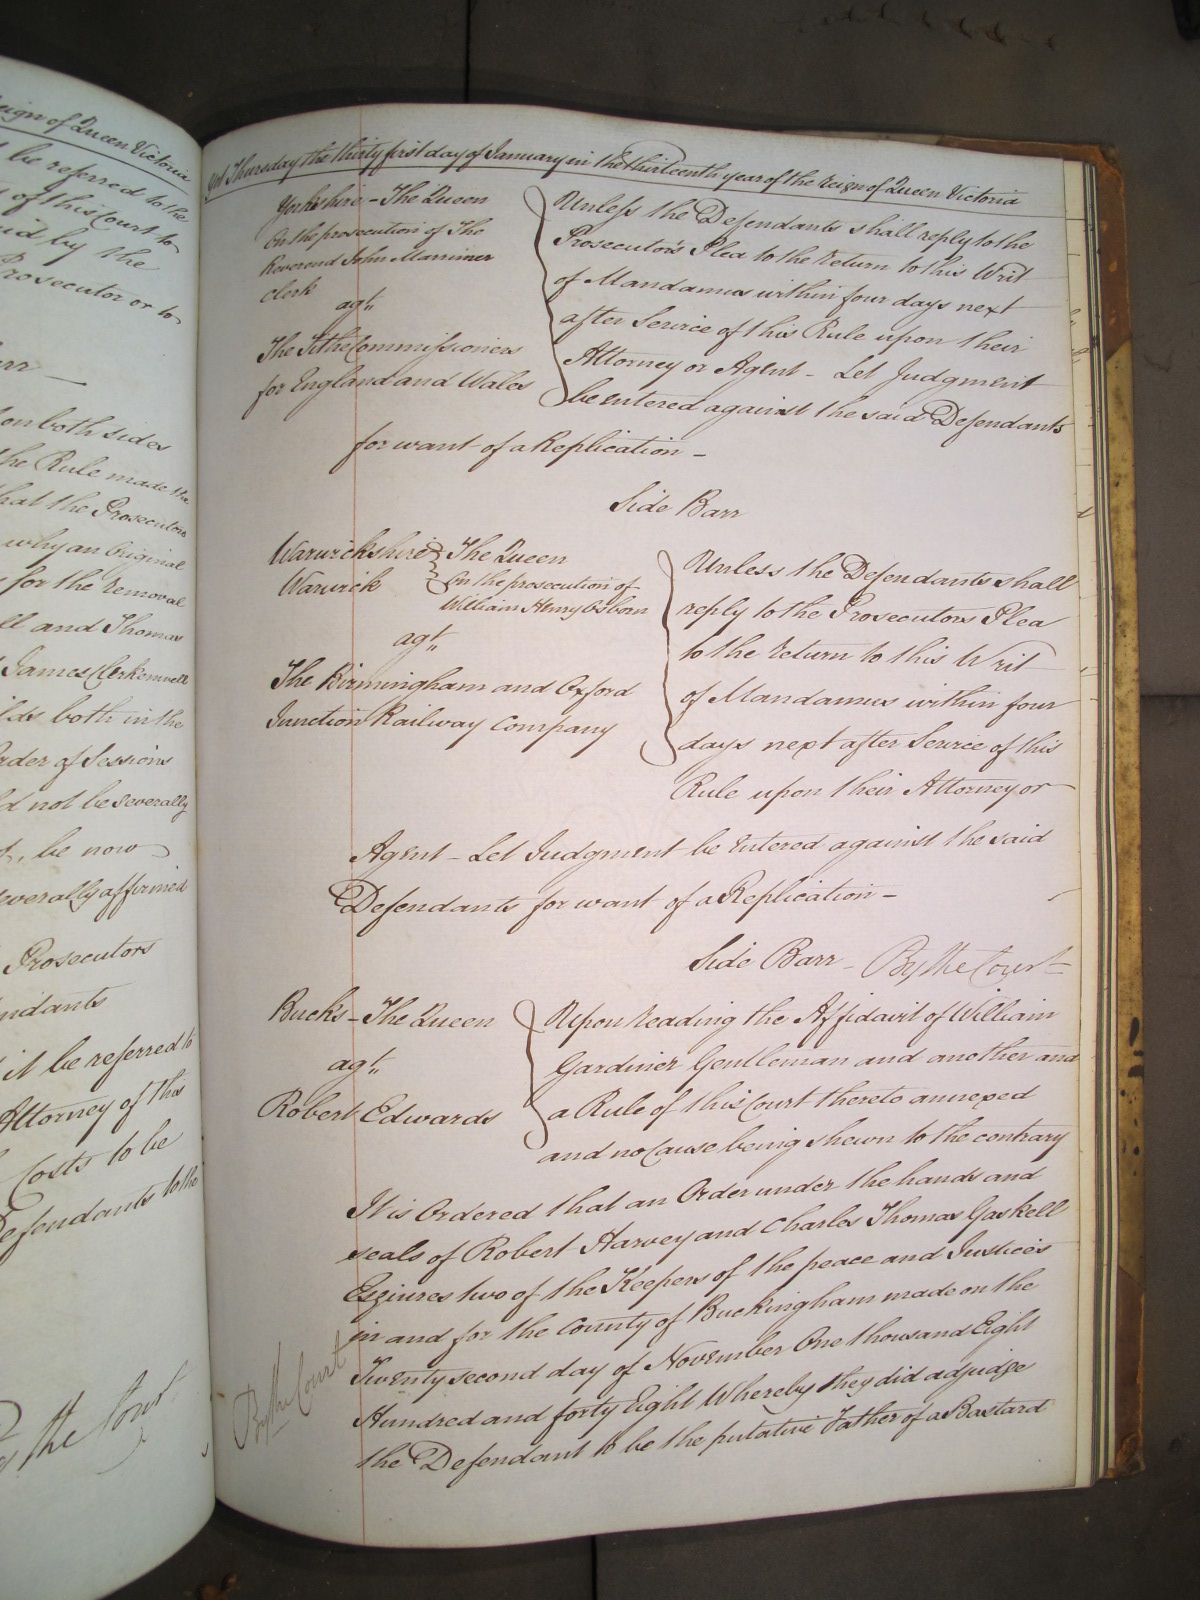 eign of Queen Victoria
be referred to the
of this Court to
id by the
Prosecutor or to
on both sides
the Rule made the
that the Prosecutors
why an Original
for the Removal
ll and Thomas
James Clerkenwell
both in the
rder of Sessions
d not be severally
be now
everally affirmed
Prosecutors
endants
it be referred to
Attorney of this
Costs to be
Defendants to the
the Court
Yet Thursday the thirty first day of January in the thirteenth year of the Reign of Queen Victoria
Yorkshire - The Queen
On the prosecution of The
Reverend John Marriner
Clerk
agt.
The Tithe Commissioners
for England and Wales
Unless the Defendants shall reply to the
Prosecutor's Plea to the Return to this Writ
of Mandamus within four days next
after Service of this Rule upon their
Attorney or Agent - Let Judgment
be entered against the said Defendants
for want of a Replication -
Side Barr
Warwickshire The Queen
Warwick On the prosecution of
William Henry Osborn
agt.
The Birmingham and Oxford
Junction Railway Company
Unless the Defendants shall
reply to the Prosecutors Plea
to the Return to this Writ
of Mandamus within four
days next after Service of this
Rule upon their Attorney or
Agent - Let Judgment be entered against the said
Defendants for want of a Replication -
Side Barr - By the Court
Bucks - The Queen
agt.
Robert Edwards
Upon reading the Affidavit of William
Gardiner Gentleman and another and
a Rule of this Court thereto annexed
and no Cause being shewn to the contrary
It is Ordered that an Order under the hands and
seals of Robert Harvey and Charles Thomas Gaskell
Esquires two of the Keepers of the peace and Justices
in and for the County of Buckingham made on the
Twenty second day of November One thousand Eight
Hundred and forty Eight Whereby they did adjudge
the Defendant to be the putative Father of a Bastard
By the Court